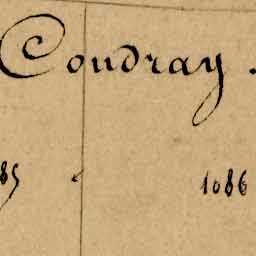 Coudray.
85 " 1086